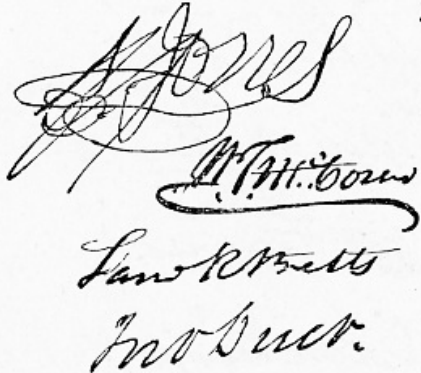 A. Jones
W. T. McCown
Sam R Betts
Jno Buck.